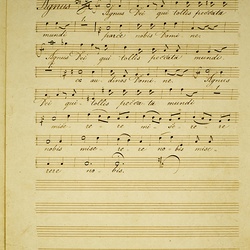 Agnus Agnus Dei qui tollis peccata
mundi parce nobis Domine.
Agnus Dei qui tollis peccata mundi
exaudi nos Domine. Agnus
Dei qui tollis peccata mundi
miserere miserere
nobis miserere nobis mise-
rere nobis.